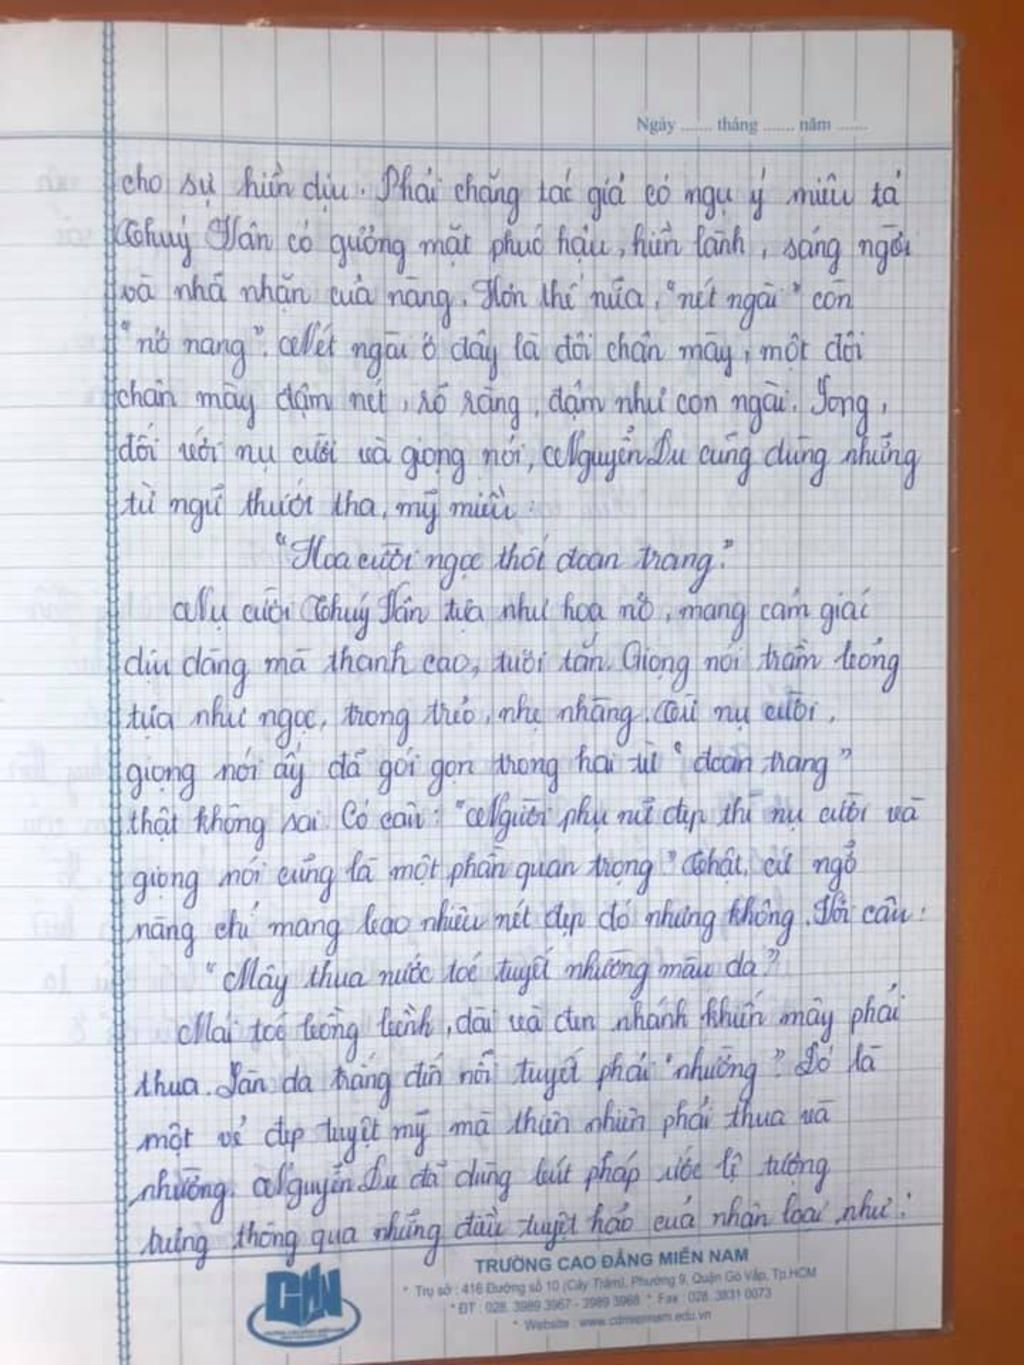 Ngày ....... tháng ....... năm .......
cho sự hiền dịu. Phải chăng tác giả có ngụ ý miêu tả
Thuý Vân có gương mặt phúc hậu, hiền lành, sáng ngời
và nhã nhặn của nàng. Hơn thế nữa, "nét ngài" còn
"nở nang". Nét ngài ở đây là đôi chân mày, một đôi
chân mày đậm nét, rõ ràng, đậm như con ngài. Song,
đối với nụ cười và giọng nói, Nguyễn Du cũng dùng những
từ ngữ thướt tha, mỹ miều:
"Hoa cười ngọc thốt đoan trang."
Nụ cười Thuý Vân tựa như hoa nở, mang cảm giác
dịu dàng mà thanh cao, tươi tắn. Giọng nói trầm bổng
tựa như ngọc, trong trẻo, nhẹ nhàng. Từ nụ cười,
giọng nói ấy đã gói gọn trong hai từ "đoan trang"
thật không sai. Có câu: "Người phụ nữ đẹp thì nụ cười và
giọng nói cũng là một phần quan trọng" Thật, cứ ngỡ
nàng chỉ mang bao nhiêu nét đẹp đó nhưng không. Với câu:
"Mây thua nước tóc tuyết nhường màu da"
Mái tóc bồng bềnh, dài và đen nhánh khiến mây phải
thua. Làn da trắng đến nỗi tuyết phải "nhường". Đó là
một vẻ đẹp tuyệt mỹ mà thiên nhiên phải thua và
nhường. Nguyễn Du đã dùng bút pháp ước lệ tượng
trưng thông qua những điều tuyệt hảo của nhân loại như:
CMN
TRƯỜNG CAO ĐẲNG MIỀN NAM
* Trụ sở : 416 Đường số 10 (Cây Trâm), Phường 9, Quận Gò Vấp, Tp.HCM
* ĐT : 028. 3989 3967 - 3989 3968 * Fax : 028. 3831 0073
* Website : www.cdmiennam.edu.vn